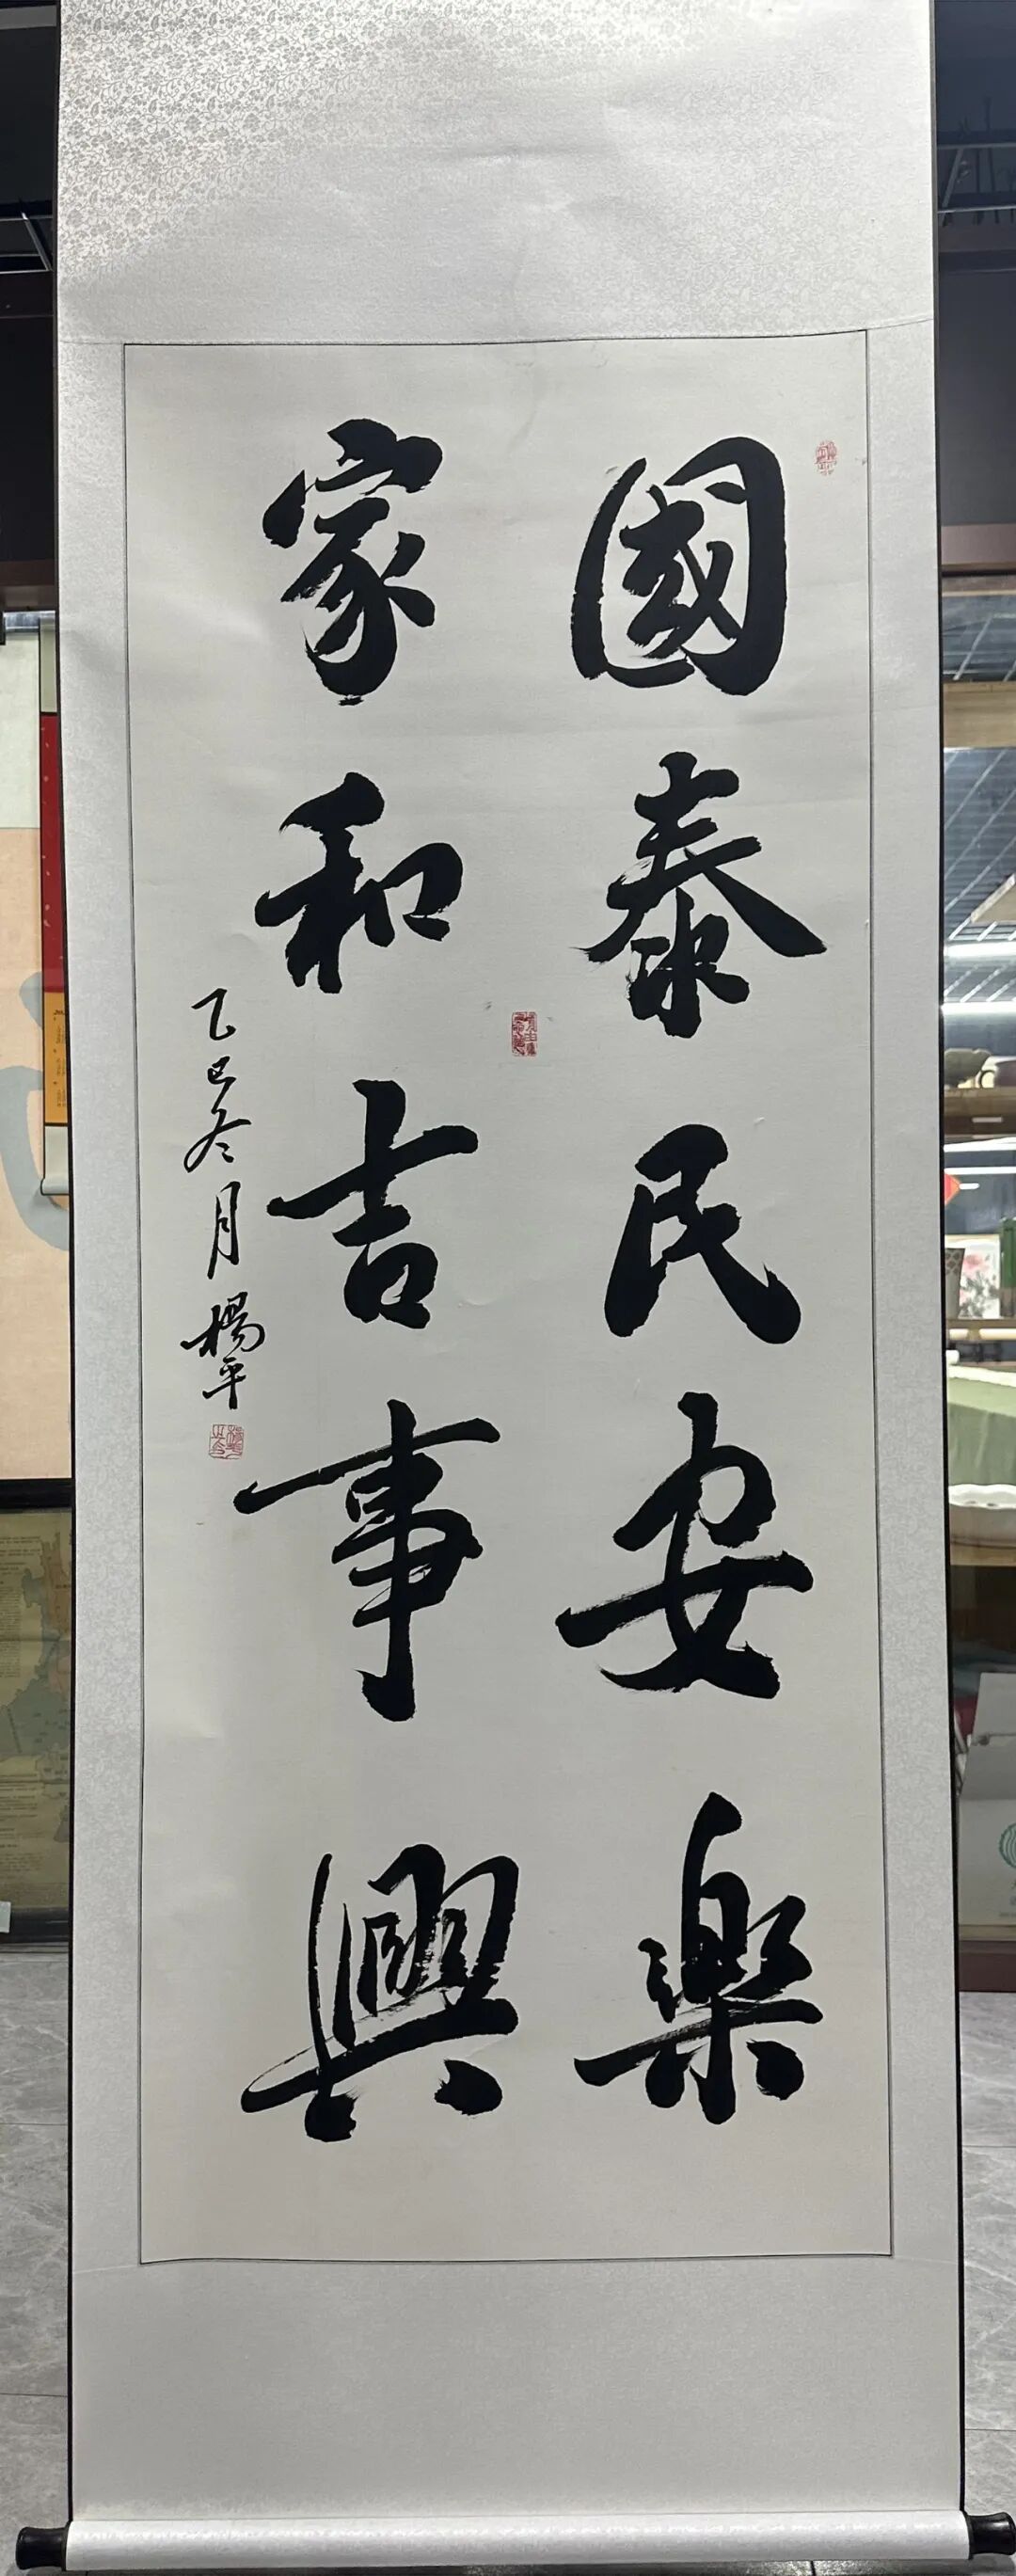 國泰民安樂
家和吉事興
乙巳冬月楊平